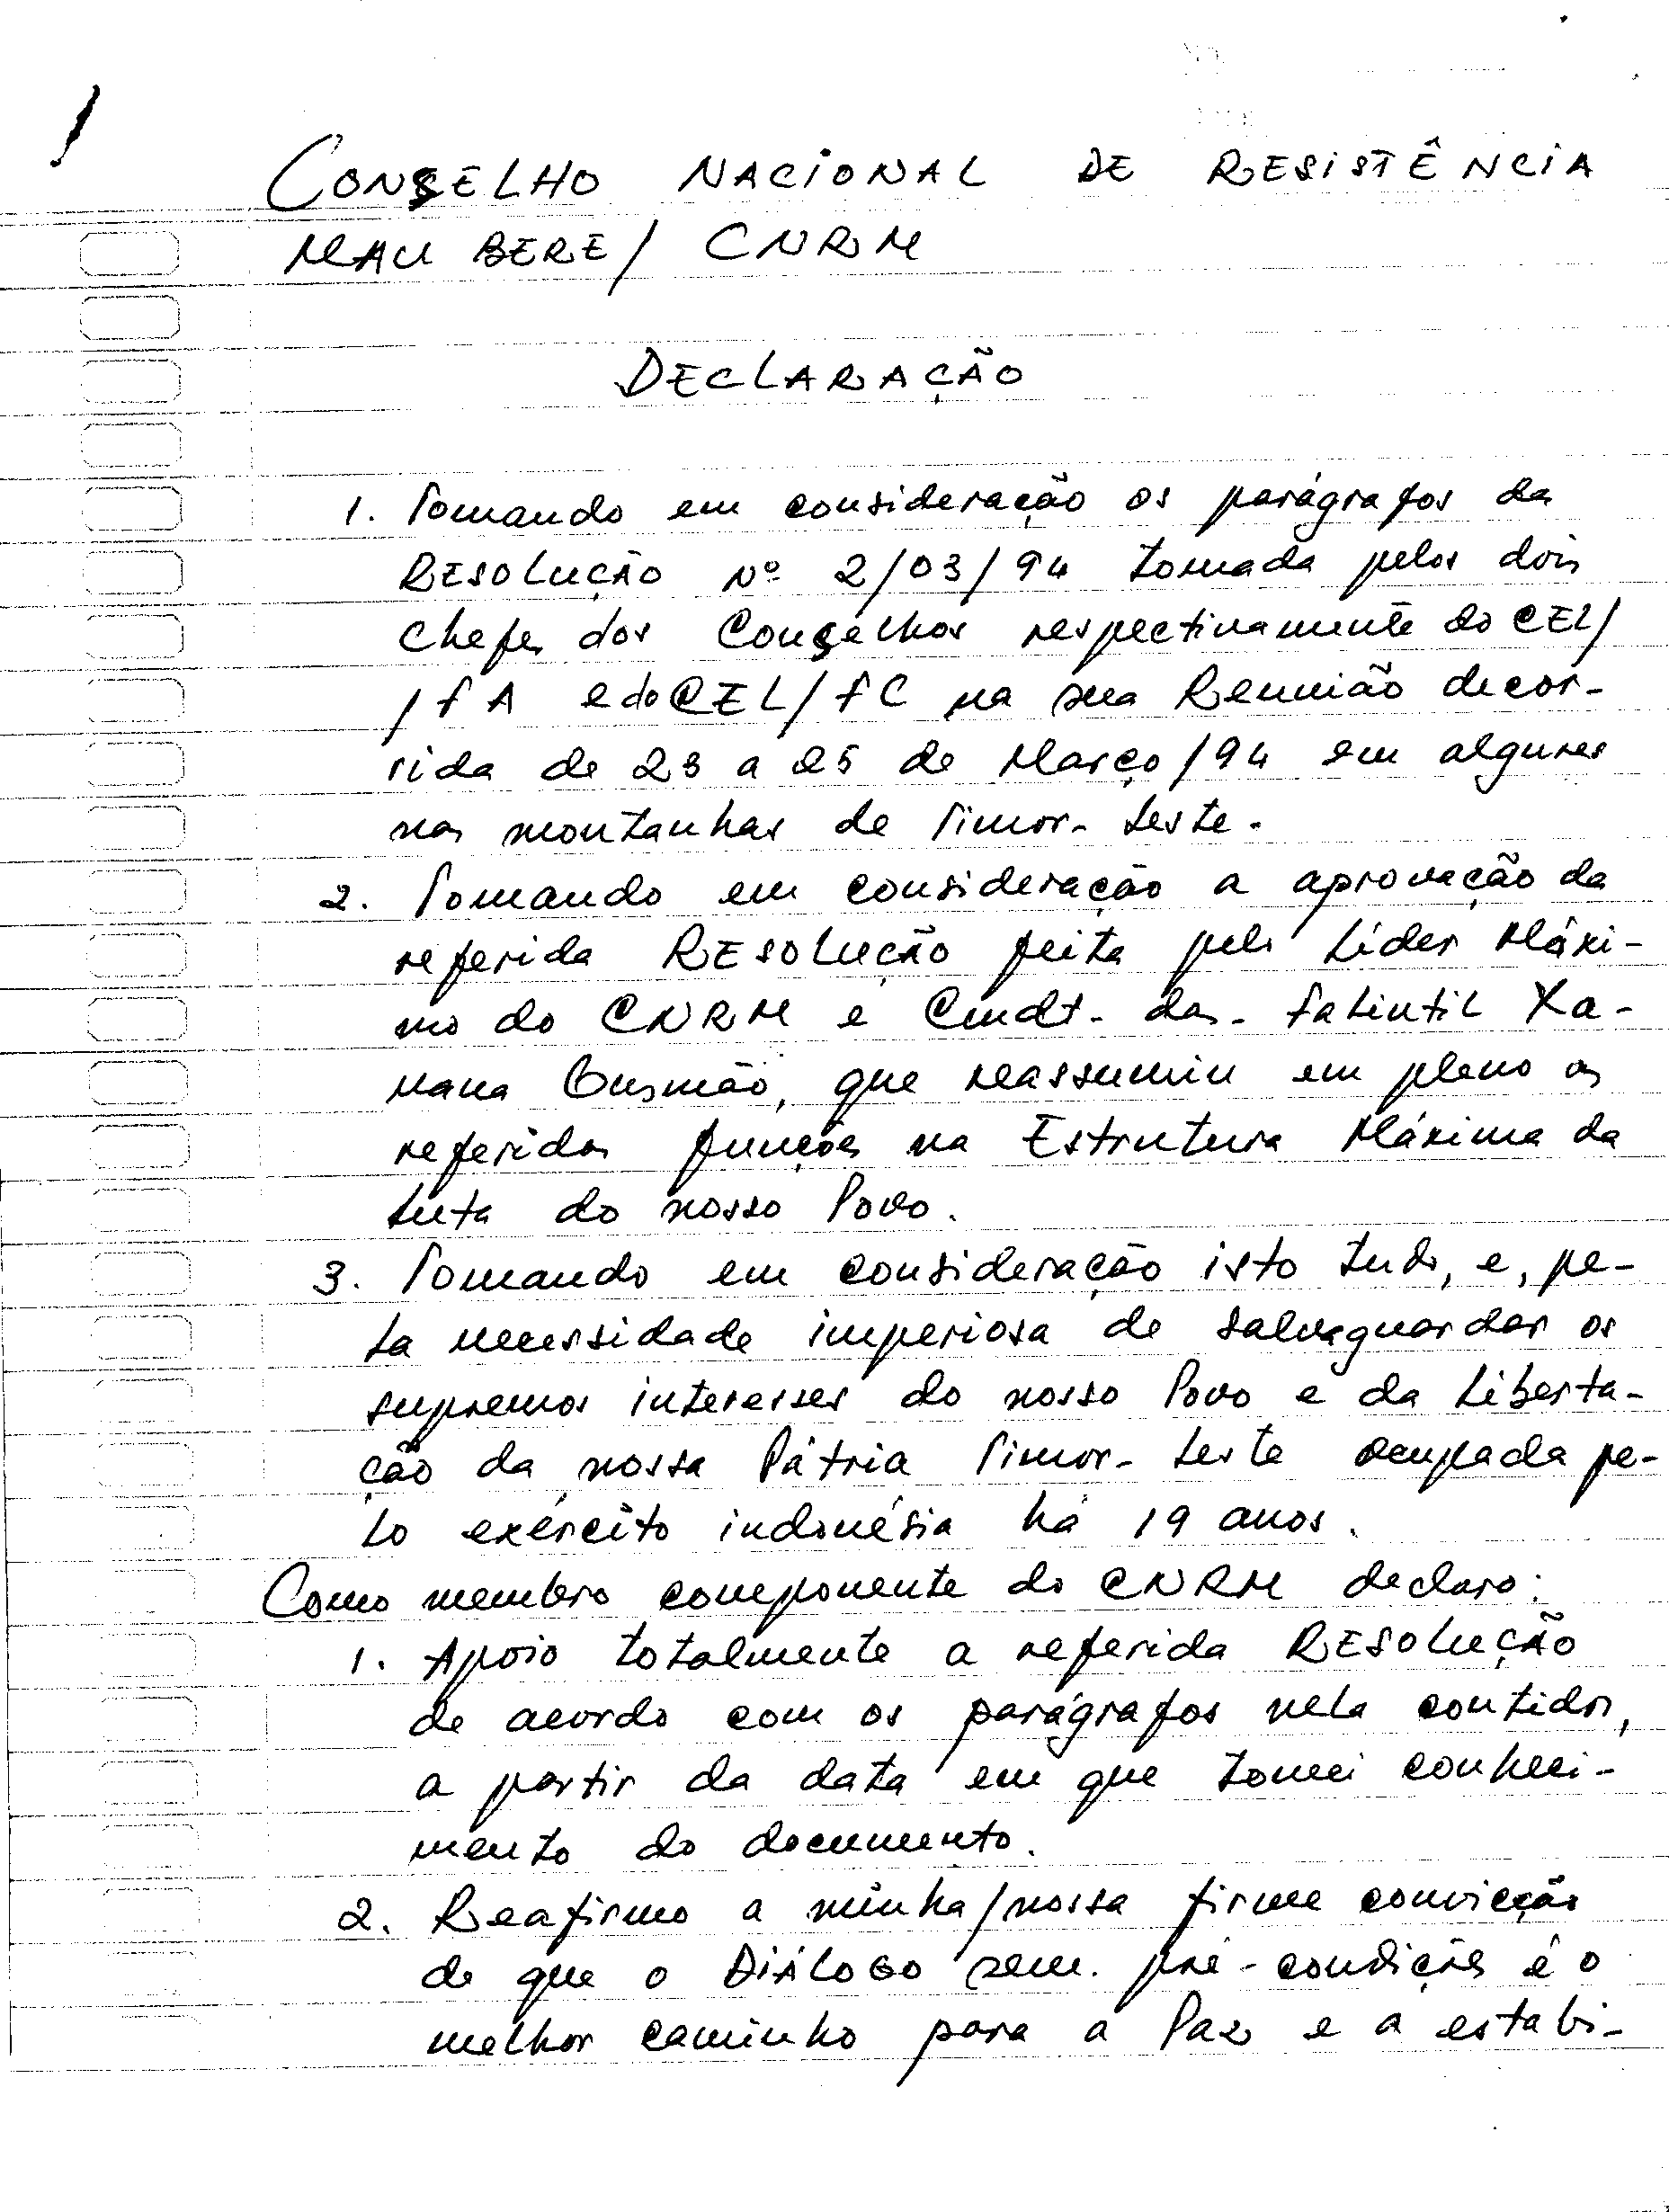 CONSELHO NACIONAL DE RESISTÊNCIA
MAUBERE/ CNRM
DECLARAÇÃO
1. Tomando em consideração os parágrafos da
RESOLUÇÃO Nº 2/03/94 tomada pelos dois
chefes dos Conselhos respectivamente do CEL/
/FA e do CEL/FC na sua Reunião decor-
rida de 23 a 25 de Março/94 em algures
nas montanhas de Timor-Leste.
2. Tomando em consideração a aprovação da
referida RESOLUÇÃO feita pelo Líder Máxi-
mo do CNRM e Cmdt. das Falintil Xa-
nana Gusmão, que reassumiu em pleno as
referidas funções na Estrutura Máxima da
Luta do nosso Povo.
3. Tomando em consideração isto tudo, e, pe-
la necessidade imperiosa de salvaguardar os
supremos interesses do nosso Povo e da Liberta-
ção da nossa Pátria Timor-Leste ocupada pe-
lo exército indonésia há 19 anos.
Como membro componente do CNRM declaro:
1. Apoio totalmente a referida RESOLUÇÃO
de acordo com os parágrafos nela contidos,
a partir da data em que tomei conheci-
mento do documento.
2. Reafirmo a minha/nossa firme convicção
de que o DIÁLOGO sem pré-condições é o
melhor caminho para a Paz e a estabi-